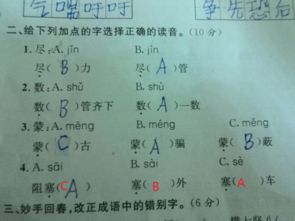 气喘吁吁 争先恐后
二、给下列加点的字选择正确的读音。(10分)
1. 尽:A. jǐn B. jìn
尽(B)力 尽(A)管
2. 数:A. shǔ B. shù
数(B)管齐下 数(A)一数
3. 蒙:A. mēng B. méng C. měng
蒙(C)古 蒙(A)骗 蒙(B)蔽
4. A. sāi B. sài C. sè
阻塞(CA) 塞(B)外 塞(A)车
三、妙手回春,改正成语中的错别字。(6分)